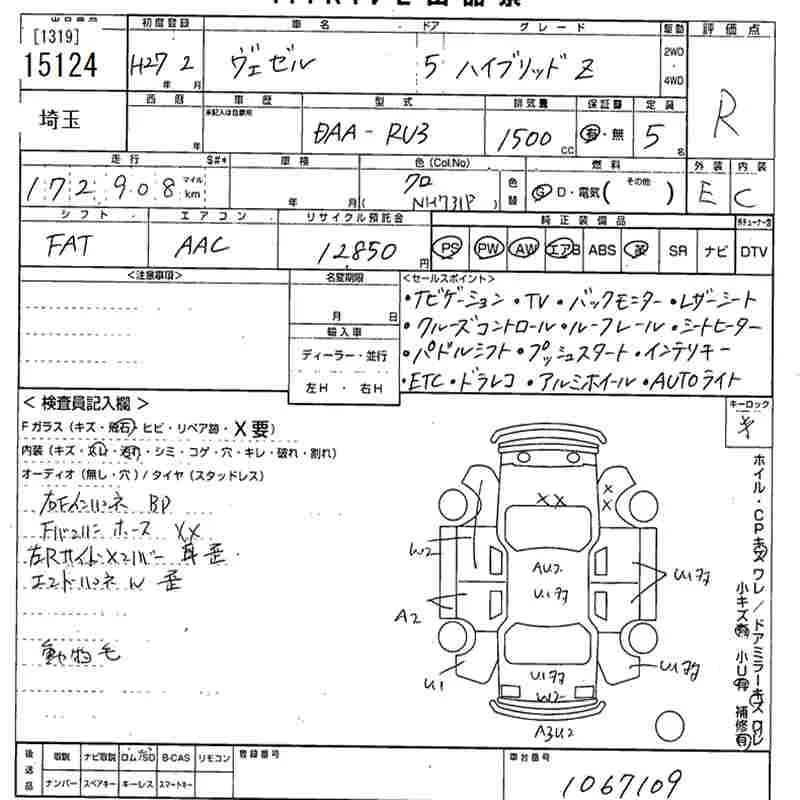 出品番号 初度登録 車名 ドア グレード 駆動 評価点
[1319]
15124 H27 2 ヴェゼル 5 ハイブリッド Z 2WD
年 月 4WD
埼玉 西暦 車歴 型式 排気量 保証書 定員 R
未記入は自家用
年 DAA-RU3 1500 CC 有・無 5 名
走行 S#* 車検 色(Col.No) 燃料 外装 内装
172908 マイル km 年 月 クロ 色替 G D・電気( その他 ) E C
( NH731P )
シフト エアコン リサイクル預託金 純正装備品
FAT AAC 12850 円 PS PW AW エアB ABS 革 SR ナビ DTV
<注意事項> 名変期限 <セールスポイント>
月 日
・ナビゲーション・TV・バックモニター・レザーシート
輸入車
・クルーズコントロール・ルーフレール・シートヒーター
ディーラー・並行
・パドルシフト・プッシュスタート・インテリキー
左H・右H
・ETC・ドラレコ・アルミホイール・AUTOライト
<検査員記入欄> キーロック
Fガラス(キズ・飛石・ヒビ・リペア跡・X要)
内装(キズ・スレ・汚れ・シミ・コゲ・穴・キレ・破れ・割れ)
オーディオ(無し・穴)/タイヤ(スタッドレス)
右Fインパネ BP
Fバンパー ホース XX
エンドパネ W 歪
動物毛
XX
X X
X
W2
AU2
U1
U1
A2
U1
U1
U1
W2
A3U2
ホイル・CPキズ ワレ/ドアミラーキズ ワレ
小キズ有 小U有 補修有
後送品 取説 ナビ取説 ロム/SD B-CAS リモコン 登録番号 車台番号
ナンバー スペアキー キーレス スマートキー 1067109